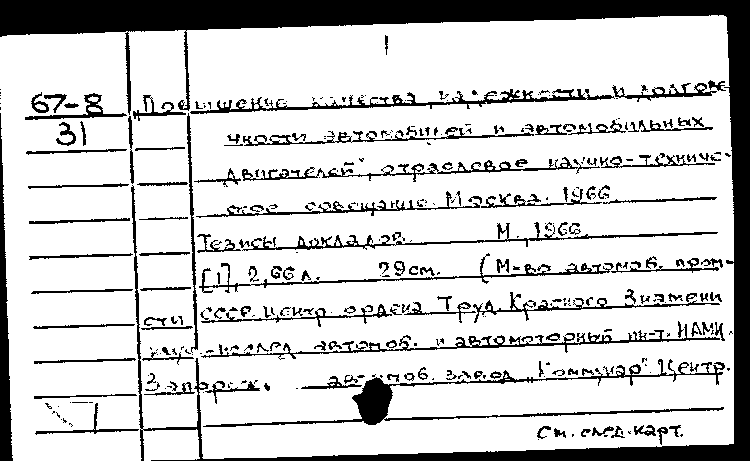 1
67-8 „Повышение качества, надежности и долгове
31 чности автомобилей и автомобильных
двигателей", отраслевое научно-техниче-
ское совещание. Москва. 1966.
Тезисы докладов. М., 1966.
[1], 2, 66 л. 29 см. (М-во автомоб. пром-
сти СССР. Центр. ордена Труд. Красного Знамени
науч.-исслед. автомоб. и автомоторный ин-т. НАМИ.
Запорож. автомоб. завод „Коммунар". Центр.
См. след. карт.